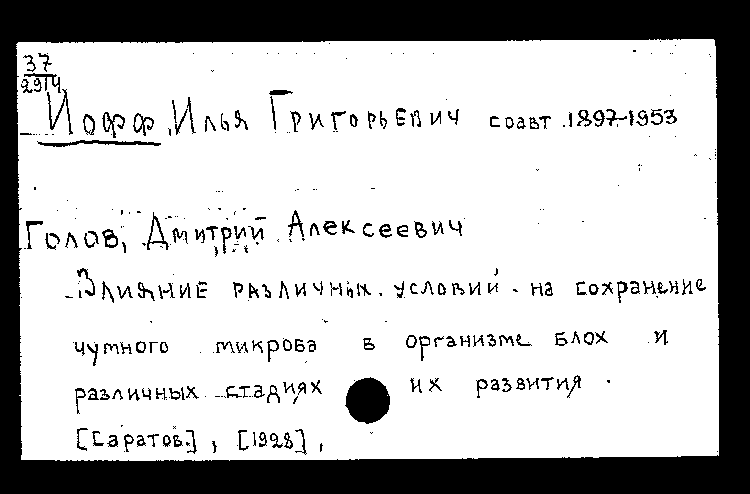 37
2914
Иофф, Илья Григорьевич соавт. 1897-1953
Голов, Дмитрий Алексеевич
Влияние различных условий на сохранение
чумного микроба в организме блох и
различных стадиях их развития.
[Саратов.], [1928],